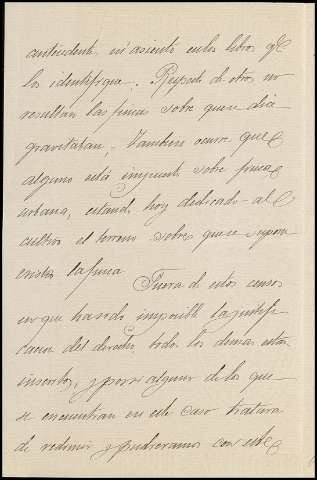 antecedente ni asiento en los libros que
los identifique. Respecto de otros no
resultan las fincas sobre que se dice
gravitaban. Tambien ocurre que
alguno está impuesto sobre finca
urbana, estando hoy dedicado al
cultivo el terreno sobre que se supone
existia la finca
Fuera de estos censos
en que ha sido imposible la justifi-
cacion del derecho, todos los demas estan
inscritos, y por si alguno de los que
se encuentran en este caso tratara
de redimir y pudieramos con este